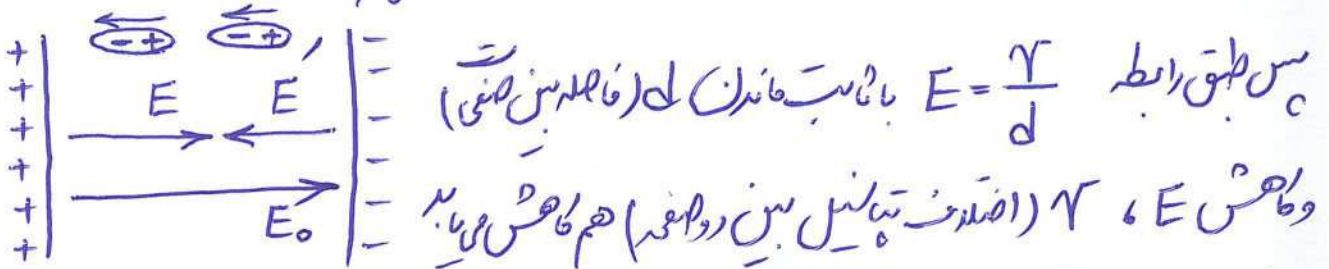 پس طبق رابطه E = V/d با ثابت ماندن d (فاصله بین صفحات)
و کاهش E ، V (اختلاف پتانسیل بین دو صفحه) هم کاهش می یابد
- + - +
+ + + + + +
E E′
E₀
- - - - - - -